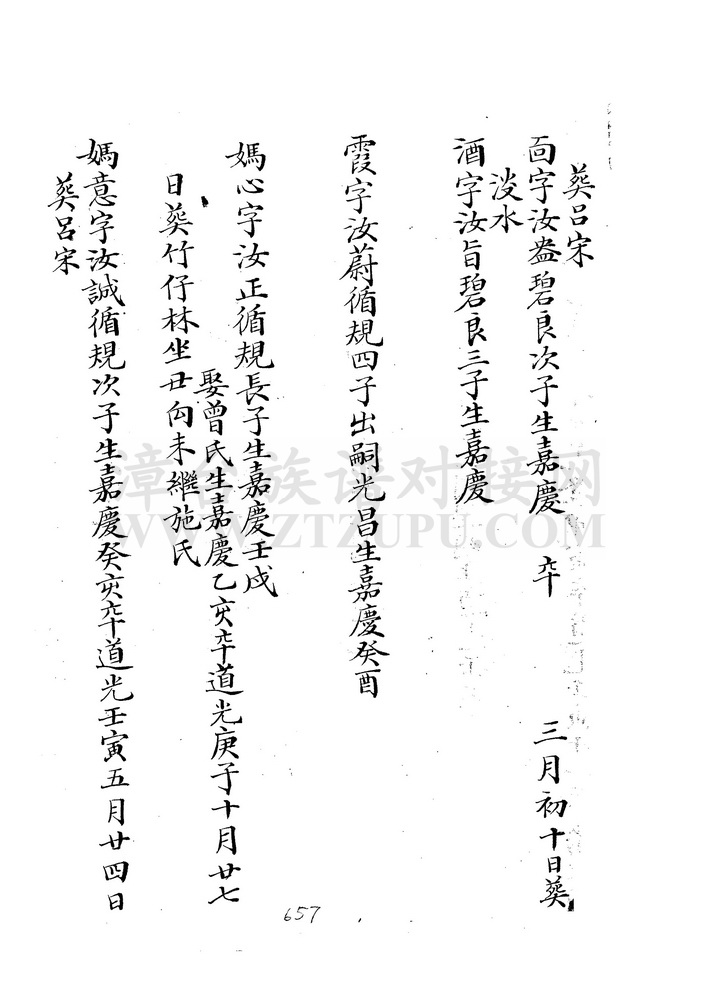 葵呂宋
面字汝盎碧良次子生嘉慶 卒 三月初十日葵
淡水
酒字汝旨碧良三子生嘉慶
霞字汝蔚循規四子出嗣光昌生嘉慶癸酉
媽心字汝正循規長子生嘉慶壬戌
娶曾氏生嘉慶乙亥卒道光庚子十月廿七
日葵竹仔林坐丑向未繼施氏
媽意字汝誠循規次子生嘉慶癸亥卒道光壬寅五月廿四日
葵呂宋
657
漳台族谱对接网
WWW.ZTZUPU.COM